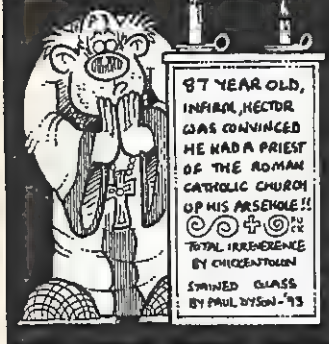 87 YEAR OLD,
INFIRM, HECTOR
WAS CONVINCED
HE HAD A PRIEST
OF THE ROMAN
CATHOLIC CHURCH
UP HIS ARSEHOLE!!
TOTAL IRREVERENCE
BY CHICCENTOLON
STAINED GLASS
BY PAUL DYSON-'93